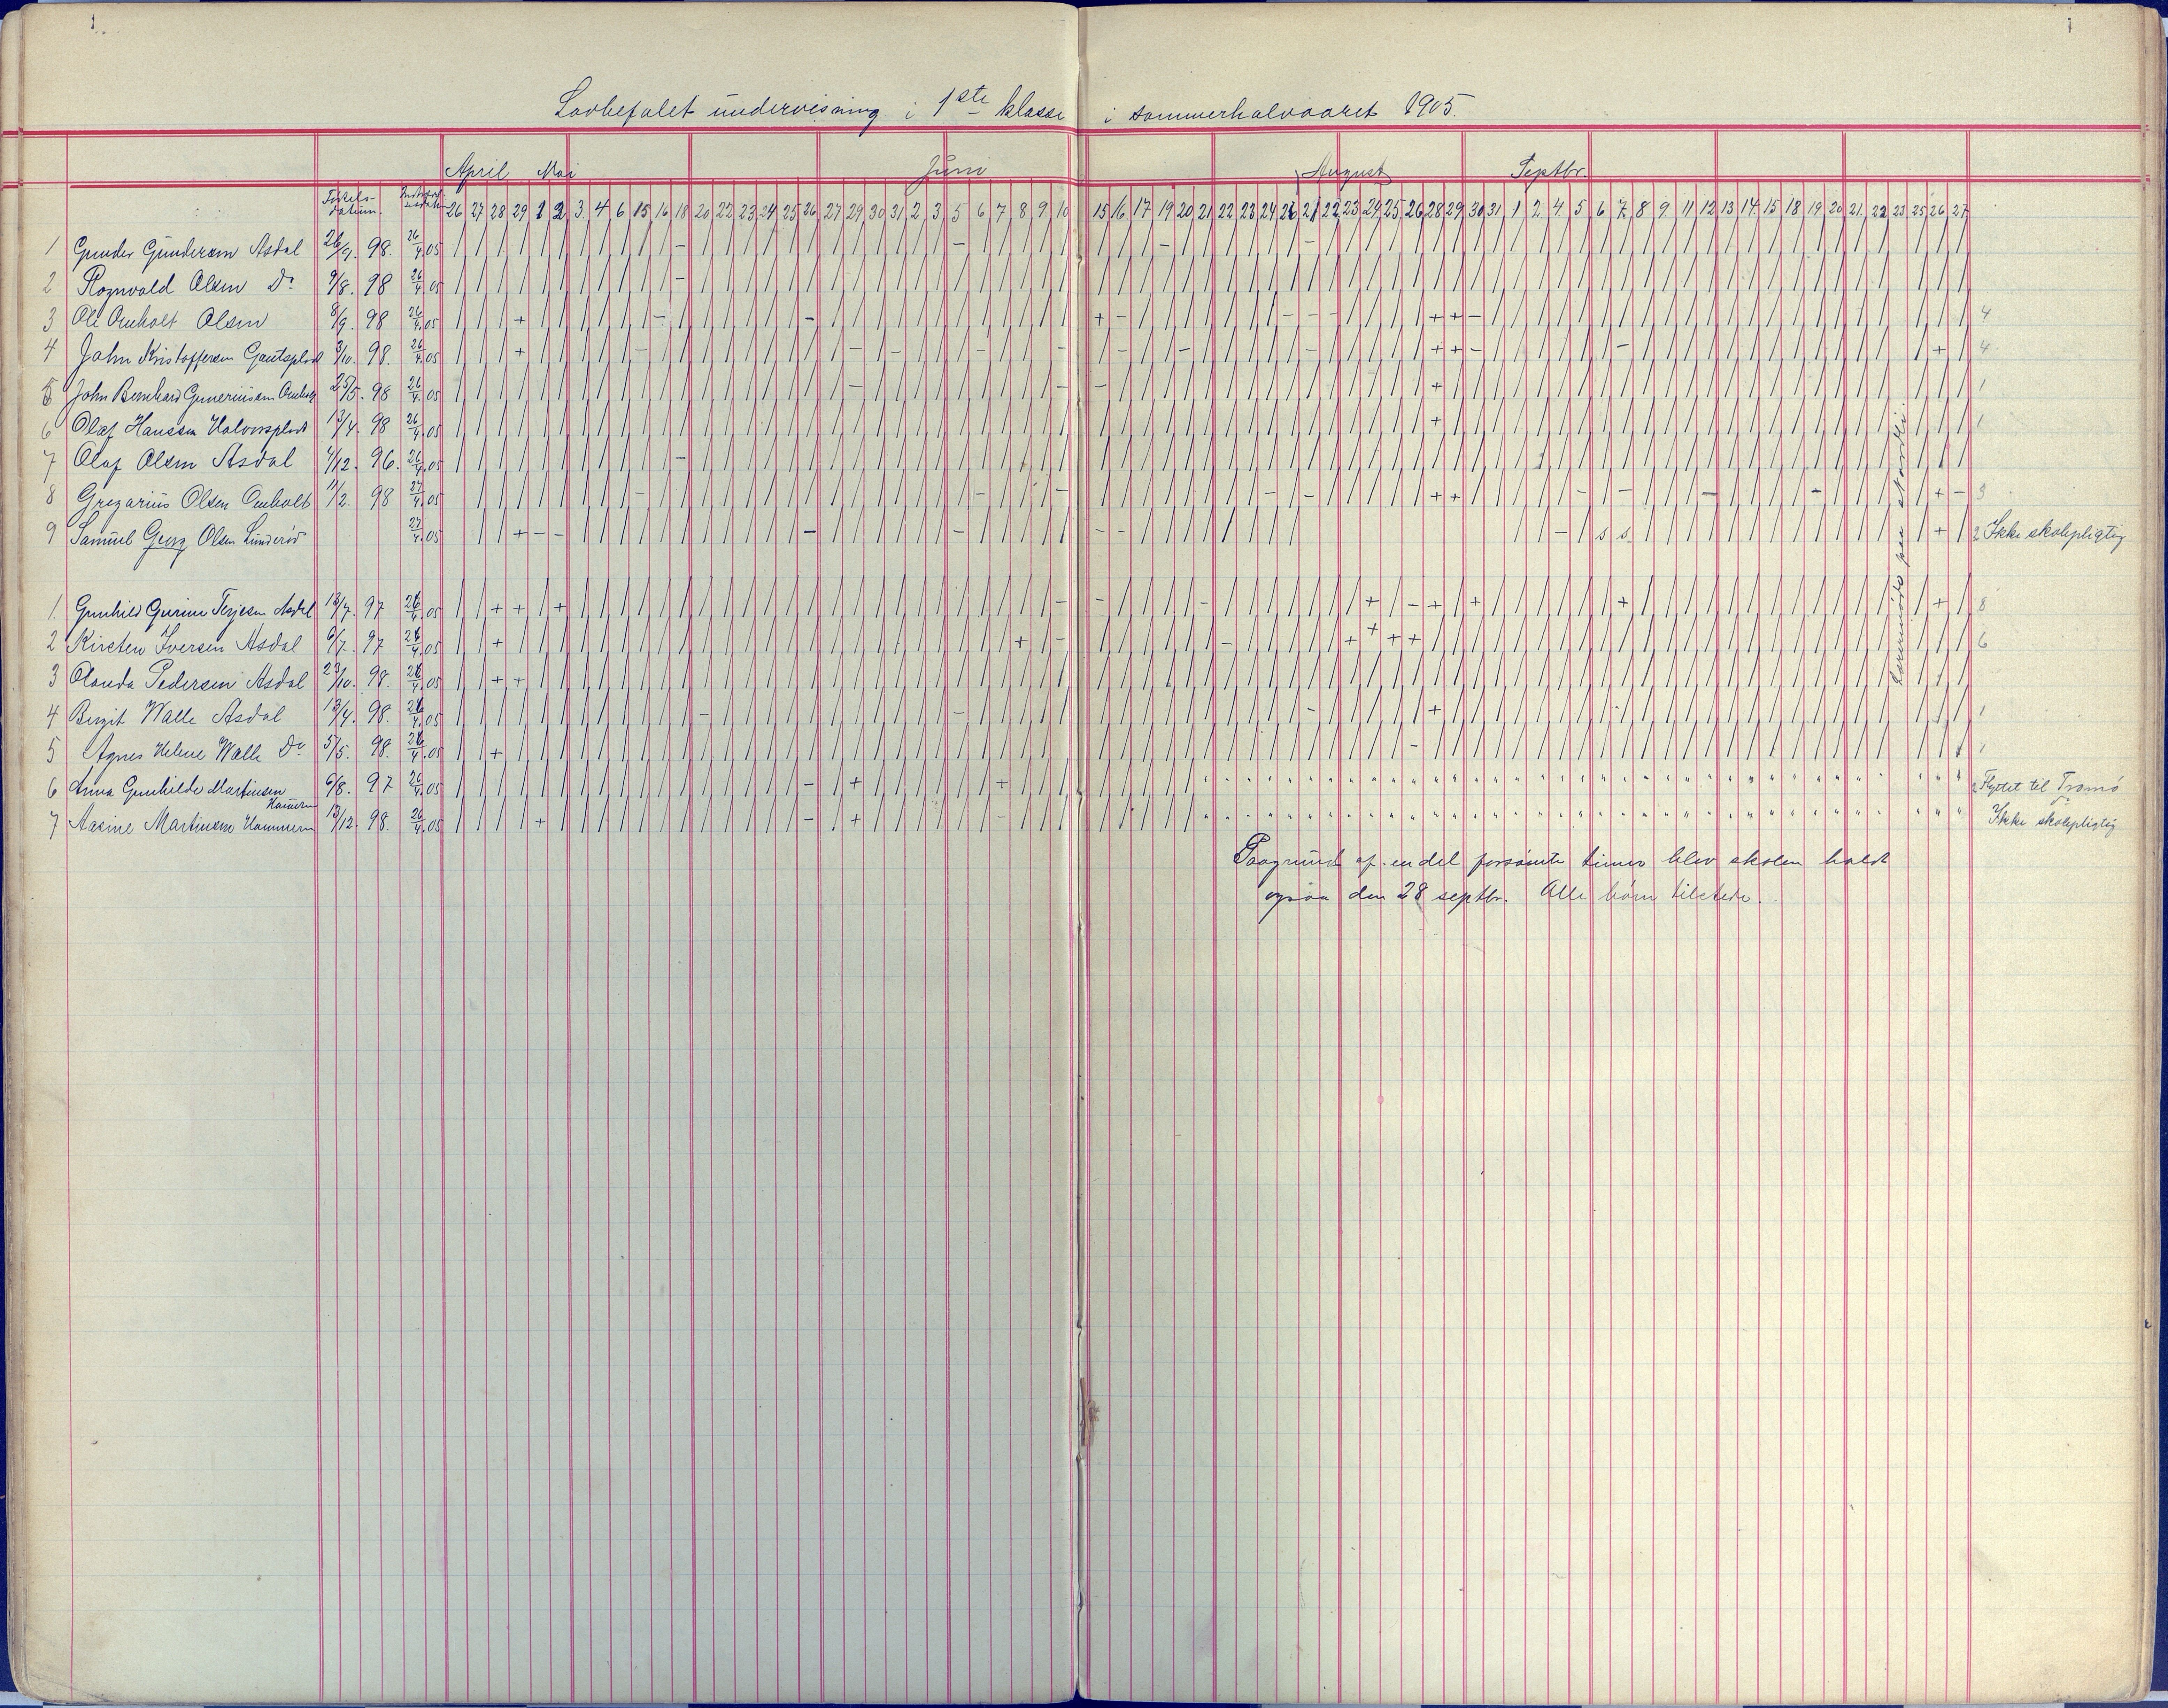 1
1
Lovbefalet undervisning i 1ste klasse i sommerhalvaaret 1905.
April Mai Juni August Septbr.
Fødsels-datum.
26 27 28 29 1 2 3 4 6 15 16 18 20 22 23 24 25 26 27 29 30 31 2 3 5 6 7 8 9 10 15 16 17 19 20 21 22 23 24 26 21 22 23 24 25 26 28 29 30 31 1 2 4 5 6 7 8 9 11 12 13 14 15 18 19 20 21 22 23 25 26 27
1 Gunder Gundersen Asdal 26/9. 98. 26/4.05
2 Rognvald Olsen Do 9/8. 98 26/4.05
3 Ole Omholt Olsen 8/9. 98 26/4.05 4
4 John Kristoffersen Gautsplads 3/10. 98. 26/4.05 4
5 John Bernhard Guneriussen 25/5. 98 26/4.05 1
6 Olaf Hanssen Halvorsplads 13/4. 98 26/4.05 1
7 Olaf Olsen Asdal 4/12. 96. 26/4.05
8 Gregarius Olsen Omholt 11/2. 98 27/4.05 3
9 Samuel Georg Olsen Lunderød 27/4.05 2 Ikke skolepligtig
Lærermøde paa
1. Gunhild Gurine Terjesen Asdal 13/7. 97 26/4.05 8
2 Kirsten Iversen Asdal 6/7. 97 26/4.05 6
3 Olanda Pedersen Asdal 23/10. 98. 26/4.05
4 Bergit Walle Asdal 13/4. 98. 26/4.05 1
5 Agnes Helene Walle Do 5/5. 98. 26/4.05 1
6 Anna Gunhilde Martinsen Hammeren 6/8. 97 26/4.05 2 Flyttet til Tromø
7 Aasine Martinsen Hammeren 13/12. 98. 26/4.05 do Ikke skolepligtig
Paagrund af en del forsømte timer blev skolen holdt
ogsaa den 28 septbr. Alle børn tilstede.